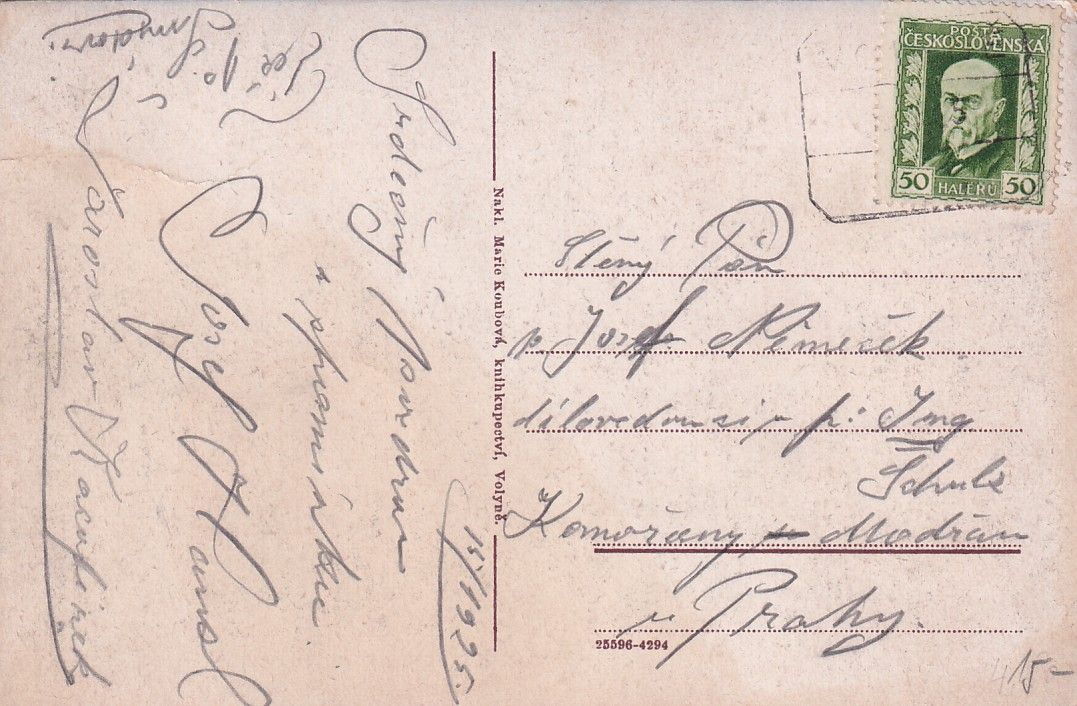 Srdečný pozdrav
s upomínkou.
15/V 1925.
Josef
Jaroslav
Nakl. Marie Koubová, knihkupectví, Volyně.
POŠTA
ČESKOSLOVENSKA
50 HALÉŘŮ 50
Ctěný Pán
p. Josef Němeček
dílovedoucí u p. Ing
Schulz
Komořany - Modřan
u Prahy.
25596-4294
415-